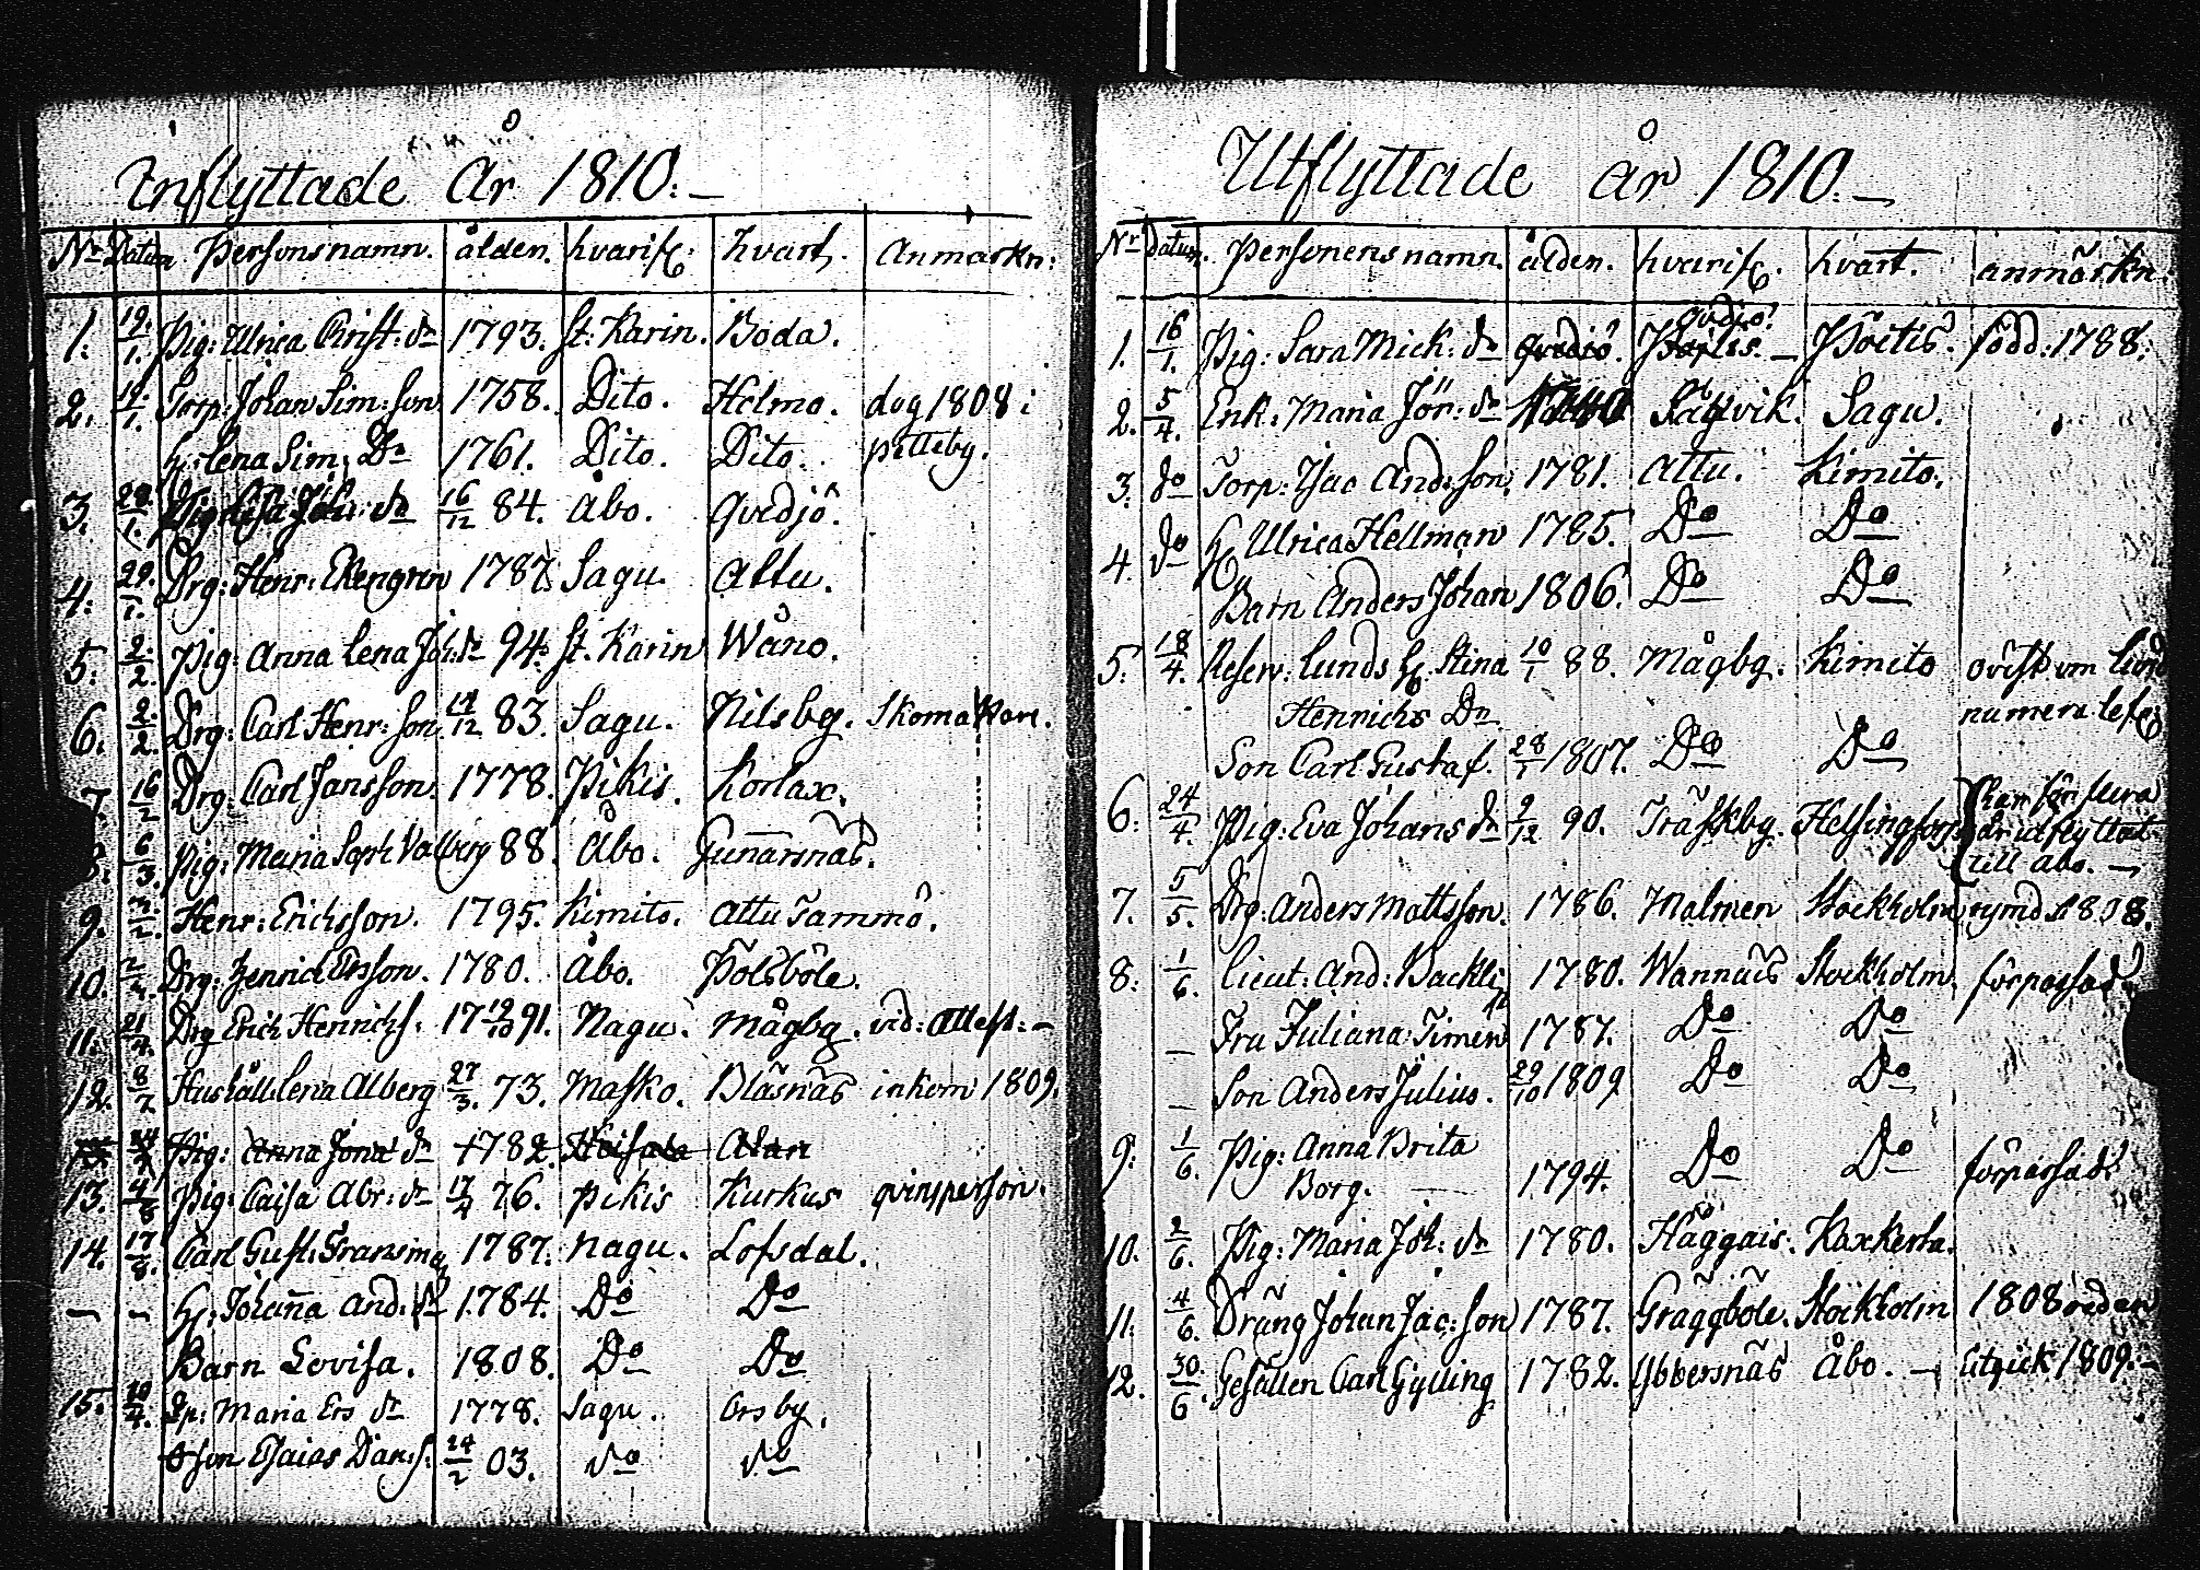 Inflyttade År 1810. —
Nr Datum Personsnamn. ålden. hvarifr: hvart. Anmärkn:
1. 19/1. Pig: Ulrica Christ: dr 1793. St: Karin. Boda.
2. 19/1. Torp: Johan Sim: son 1758. Dito. Helmo. dog 1808 i
h: Lena Sim: Dr 1761. Dito. Dito. pitteby.
3. 29/1. Pig: Lisa Joh: dr 16/12 84. Åbo. Qvidjö.
4. 29/1. Drg: Henr: Ekengren 1787. Sagu. Attu.
5. 2/2. Pig: Anna Lena Joh: dr 94. St: Karin Wåno.
6. 2/2. Drg: Carl Henr: son 83. Sagu. Nilsby. Skomakare.
7. 16/2 Drg: Carl Jansson. 1778. Pikis. Korlax.
8. 6/3. Pig: Maria Soph: Valberg 88. Åbo. Gunarsnäs.
9. Henr: Ericsson. 1795. Kimito. Attu Tammo.
10. Drg: Henrich Ersson. 1780. Åbo. Pölsböle.
11. 21/4. Drg Erich Henrichs. 17 19/10 91. Nagu. Mågby. vid: attest: —
12. 8/7. Hushåll: Lena Alberg 27/3. 73. Masko. Bläsnäs inkom 1809.
13. 24/7 Pig: Anna Jona dr 1782. Alan
13. 4/8 Pig: Caisa Abr: dr 76. Pikis Kurkus qvinsperson.
14. 17/8. Carl Gust: 1787. Nagu. Lofsdal.
— — h: Johanna And: dr 1784. Do Do
Barn Lovisa. 1808. Do Do
15. Maria Ers dr 1778. Sagu. Ersby.
son Esaias Dan: s. 24/2 03. do do
Utflyttade år 1810. —
Nr datum. Personens namn. ålden. hvarifr. hvart. anmärkn.
1. 16/1. Pig: Sara Mick: dr Qvidjö. Qvidjö. — Pöitis. född: 1788.
2. 5/4. Enk: Maria Jör: dr 1740 Sågvik. Sagu.
3. do Torp: Isac And: son. 1781. Attu. Kimito.
4. do h Ulrica Hellman 1785. Do Do
Barn Anders Johan 1806. Do Do
5. 18/4. Reserv: Lunds h: Stina 10/1 88. Mågby. Kimito ovist om Lund
Henrichs Dr numera lefr
Son Carl Gustaf. 28/1 1807. Do Do
6. 24/4. Pig: Eva Johans dr 9/12 90. Träskby. Helsingfors har för flera
år utflyttat
till Åbo. —
7. 5/5. Drg: Anders Mattsson. 1786. Malmen Stockholm rymd: 1808.
8. 1/6. Lieut: And: Backlin 1780. Wannäis Stockholm. förpassad
— Fru Juliana Timen 1787. Do Do
— Son Anders Julius. 29/10 1809 Do Do
9. 1/6. Pig: Anna Brita
Borg. — 1794. Do Do förpassad.
10. 2/6. Pig: Maria Joh: dr 1780. Häggais. Kaxkerta.
11. 4/6. Dräng Johan Jac: son 1787. Gräggböle. Stockholm 1808 redan
12. 30/6. Gesällen Carl Gylling 1782. Ybbersnäs Åbo. — utgick 1809. —